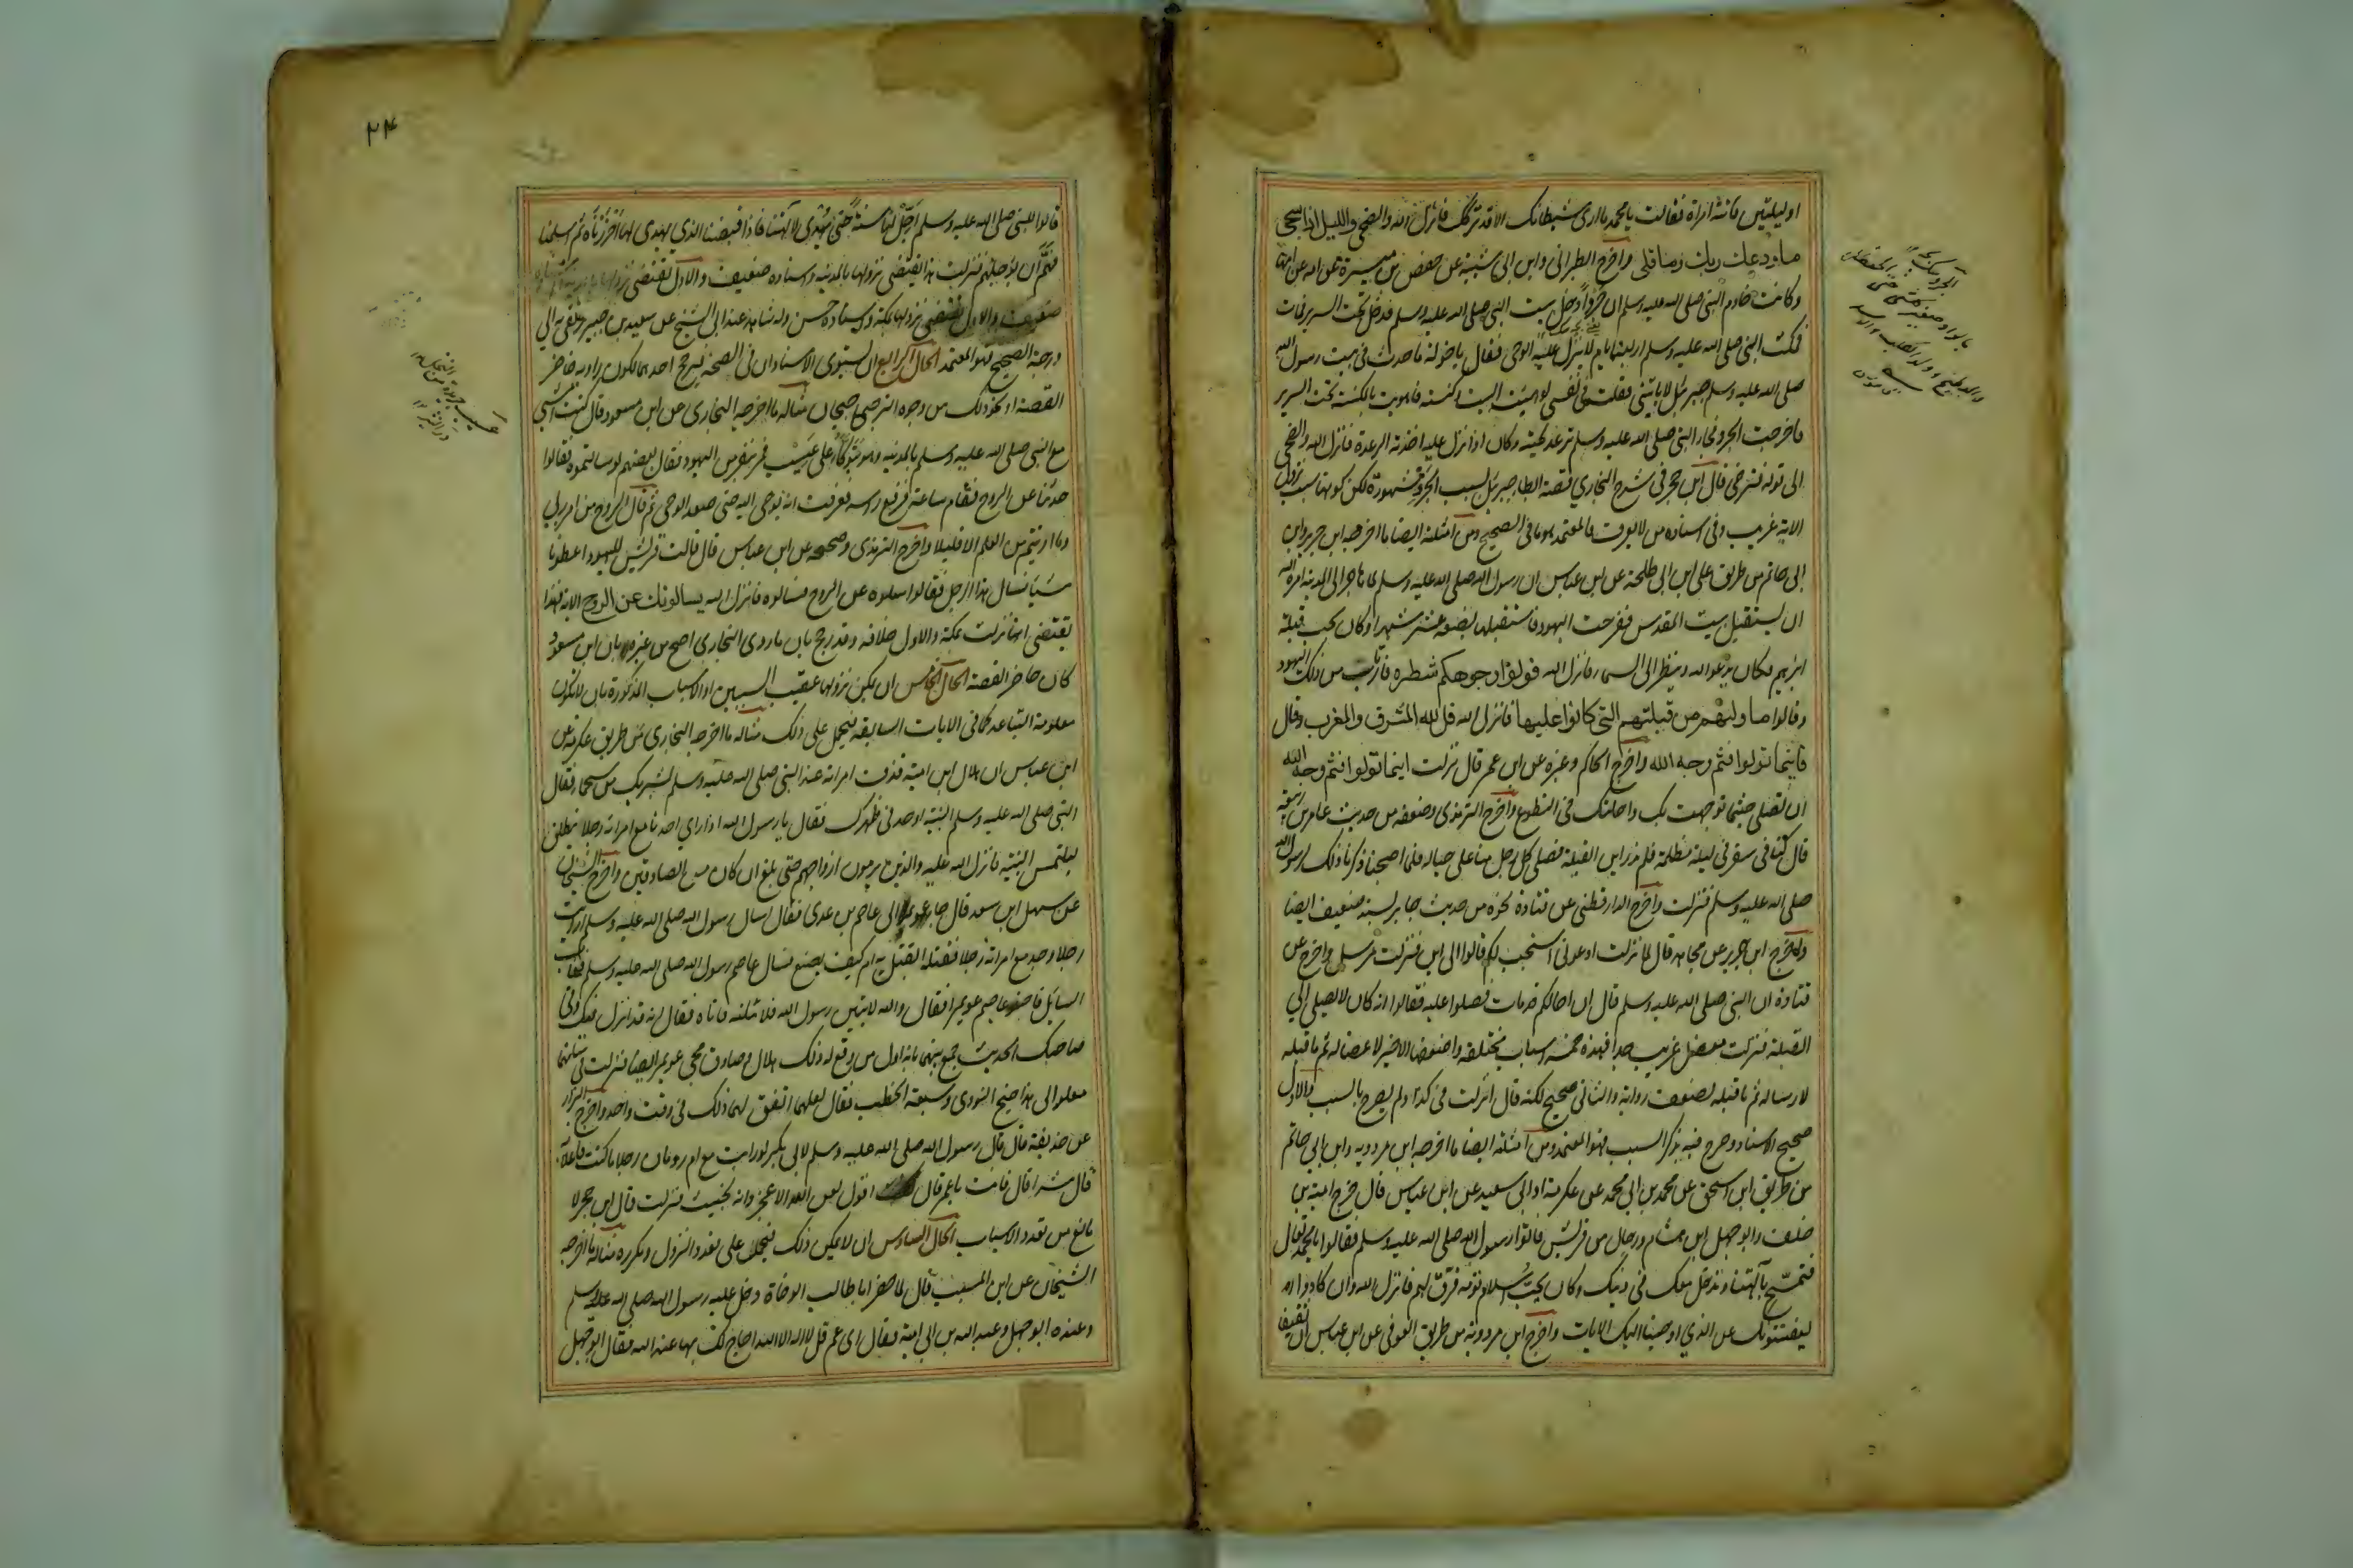 او ليلتين فاتته امراة فقالت يا محمد ما ارى شيطانك الا قد تركك فانزل الله والضحى والليل اذا سجى
ما ودعك ربك وما قلى واخرج الطبراني وابن ابي شيبة عن حفص بن ميسرة عن امه عن امها
وكانت خادم النبي صلى الله عليه وسلم ان جروا دخل بيت النبي صلى الله عليه وسلم فدخل تحت السرير فمات
فمكث النبي صلى الله عليه وسلم اربعة ايام لا ينزل عليه الوحي فقال يا خولة ما حدث في بيت رسول الله
صلى الله عليه وسلم جبرئيل لا ياتيني فقلت في نفسي لو هيئت البيت وكنسته فاهويت بالمكنسة تحت السرير
فاخرجت الجرو فجاء النبي صلى الله عليه وسلم ترعد لحيته وكان اذا نزل عليه اخذته الرعدة فانزل الله والضحى
الى قوله فترضى قال ابن حجر في شرح البخاري قصة ابطاء جبرئيل بسبب الجرو مشهورة لكن كونها سبب نزول
الاية غريب وفي اسناده من لا يعرف فالمعتمد ما في الصحيح ومن امثلته ايضا ما اخرجه ابن جرير وابن
ابي حاتم من طريق علي ابن ابي طلحة عن ابن عباس ان رسول الله صلى الله عليه وسلم لما هاجر الى المدينة امره الله
ان يستقبل بيت المقدس ففرحت اليهود فاستقبلها بضعة عشر شهرا وكان يحب قبلة
ابرهيم فكان يدعو الله وينظر الى السماء فانزل الله فولوا وجوهكم شطره فارتاب من ذلك اليهود
وقالوا ما ولىهم من قبلتهم التي كانوا عليها فانزل الله قل لله المشرق والمغرب وقال
فاينما تولوا فثم وجه الله واخرج الحاكم وغيره عن ابن عمر قال نزلت اينما تولوا فثم وجه الله
ان تصلي حيثما توجهت بك راحلتك في التطوع واخرج الترمذي وضعفه من حديث عامر بن ربيعة
قال كنا في سفر في ليلة مظلمة فلم ندر اين القبلة فصلى كل رجل منا على حياله فلما اصبحنا ذكرنا ذلك لرسول الله
صلى الله عليه وسلم فنزلت واخرج الدارقطني عن قتادة نحوه من حديث جابر بسند ضعيف ايضا
واخرج ابن جرير عن مجاهد قال لما نزلت ادعوني استجب لكم قالوا الى اين فنزلت مرسل واخرج عن
قتادة ان النبي صلى الله عليه وسلم قال ان اخا لكم قد مات فصلوا عليه فقالوا انه كان لا يصلي الى
القبلة فنزلت معضل غريب جدا فهذه خمسة اسباب مختلفة واضعفها الاخير لاعضاله ثم ما قبله
لارساله ثم ما قبله لضعف رواته والثاني صحيح لكنه قال انزلت في كذا ولم يصرح بالسبب والاول
صحيح الاسناد وصرح فيه بذكر السبب فهو المعتمد ومن امثلته ايضا ما اخرجه ابن مردويه وابن ابي حاتم
من طريق ابن اسحق عن محمد بن ابي محمد عن عكرمة او ابي سعيد عن ابن عباس قال خرج امية بن
خلف وابو جهل ابن هشام ورجال من قريش فاتوا رسول الله صلى الله عليه وسلم فقالوا يا محمد تعال
فتمسح بآلهتنا وندخل معك في دينك وكان يحب اسلام قومه فرق لهم فانزل الله وان كادوا
ليفتنونك عن الذي اوحينا اليك الايات واخرج ابن مردويه من طريق العوفي عن ابن عباس ان ثقيفا
٢٤
قالوا للنبي صلى الله عليه وسلم اجل لنا سنة حتى يهدى لالهتنا فاذا قبضنا الذي يهدى لها احرزناه ثم اسلمنا
فهم ان يؤجلهم فنزلت هذا يقتضي نزولها بالمدينة واسناده ضعيف والاول يقتضي
ضعيف والاول يقتضي نزولها بمكة واسناده حسن وله شاهد عند ابي الشيخ عن سعيد بن جبير يرتقي به الى
درجة الصحيح فهو المعتمد الحال الرابع ان يستوي الاسنادان في الصحة فيرجح احدهما لكون راويه حاضر
القصة او نحو ذلك من وجوه الترجيحات مثاله ما اخرجه البخاري عن ابن مسعود قال كنت امشي
مع النبي صلى الله عليه وسلم بالمدينة وهو يتوكأ على عسيب فمر بنفر من اليهود فقال بعضهم لو سالتموه فقالوا
حدثنا عن الروح فقام ساعة ورفع راسه فعرفت انه يوحى اليه حتى صعد الوحي ثم قال الروح من امر ربي
وما اوتيتم من العلم الا قليلا واخرج الترمذي وصححه عن ابن عباس قال قالت قريش لليهود اعطونا
شيا نسال هذا الرجل فقالوا سلوه عن الروح فسالوه فانزل الله يسالونك عن الروح الاية فهذا
يقتضي انها نزلت بمكة والاول خلافه وقد رجح بان ما روى البخاري اصح من غيره وبان ابن مسعود
كان حاضر القصة الحال الخامس ان يمكن نزولها عقيب السببين او الاسباب المذكورة بان لا تكون
معلومة التباعد كما في الايات السابقة فيحمل على ذلك مثاله ما اخرجه البخاري من طريق عكرمة عن
ابن عباس ان هلال ابن امية قذف امراته عند النبي صلى الله عليه وسلم بشريك بن سحماء فقال
النبي صلى الله عليه وسلم البينة او حد في ظهرك فقال يا رسول الله اذا راي احدنا مع امراته رجلا ينطلق
يلتمس البينة فانزل الله عليه والذين يرمون ازواجهم حتى بلغ ان كان من الصادقين واخرج الشيخان
عن سهل ابن سعد قال جاء عويمر الى عاصم بن عدي فقال اسال رسول الله صلى الله عليه وسلم ارايت
رجلا وجد مع امراته رجلا فقتله ايقتل به ام كيف يصنع فسال عاصم رسول الله صلى الله عليه وسلم فعاب
السايل فاخبر عاصم عويمرا فقال والله لاتين رسول الله فلاسئلنه فاتاه فقال انه قد انزل فيك وفي
صاحبك الحديث جمع بينهما بانه اول من وقع له ذلك هلال وصادف مجي عويمر ايضا فنزلت في شانهما
معا والى هذا جنح النووي وسبقه الخطيب فقال لعلهما اتفق لهما ذلك في وقت واحد واخرج البزار
عن حذيفة قال قال رسول الله صلى الله عليه وسلم لابي بكر لو رايت مع ام رومان رجلا ما كنت فاعلا
قال شرا قال فانت يا عمر قال اقول لعن الله الاعجز وانه لخبيث فنزلت قال ابن حجر لا
مانع من تعدد الاسباب الحال السادس ان لا يمكن ذلك فيحمل على تعدد النزول وتكرره مثاله ما اخرجه
الشيخان عن ابن المسيب قال لما حضر ابا طالب الوفاة دخل عليه رسول الله صلى الله عليه وسلم
وعنده ابو جهل وعبد الله بن ابي امية فقال اي عم قل لا اله الا الله احاج لك بها عند الله فقال ابو جهل